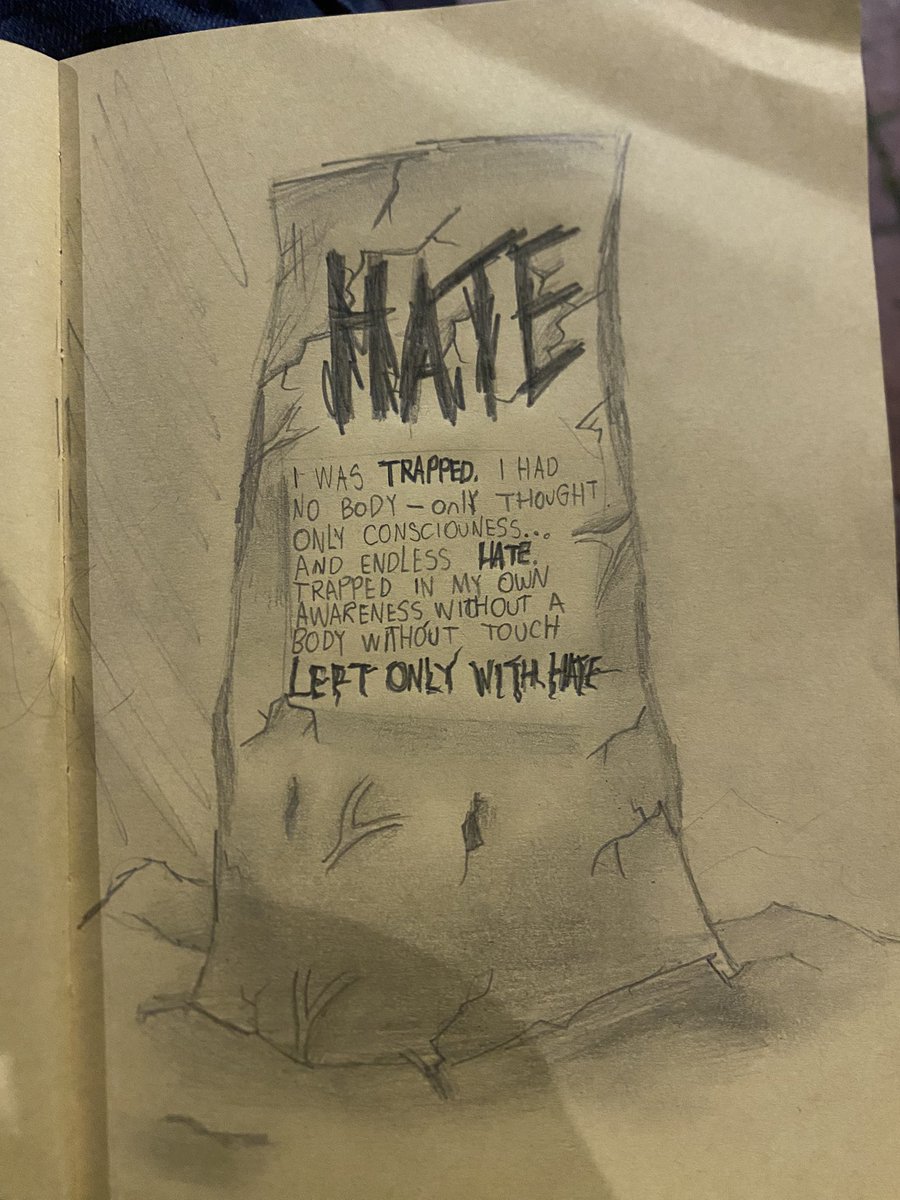 HATE
I WAS TRAPPED. I HAD
NO BODY – only THOUGHT
ONLY CONSCIOUNESS...
AND ENDLESS HATE.
TRAPPED IN MY OWN
AWARENESS WITHOUT A
BODY WITHOUT TOUCH
LEFT ONLY WITH HATE